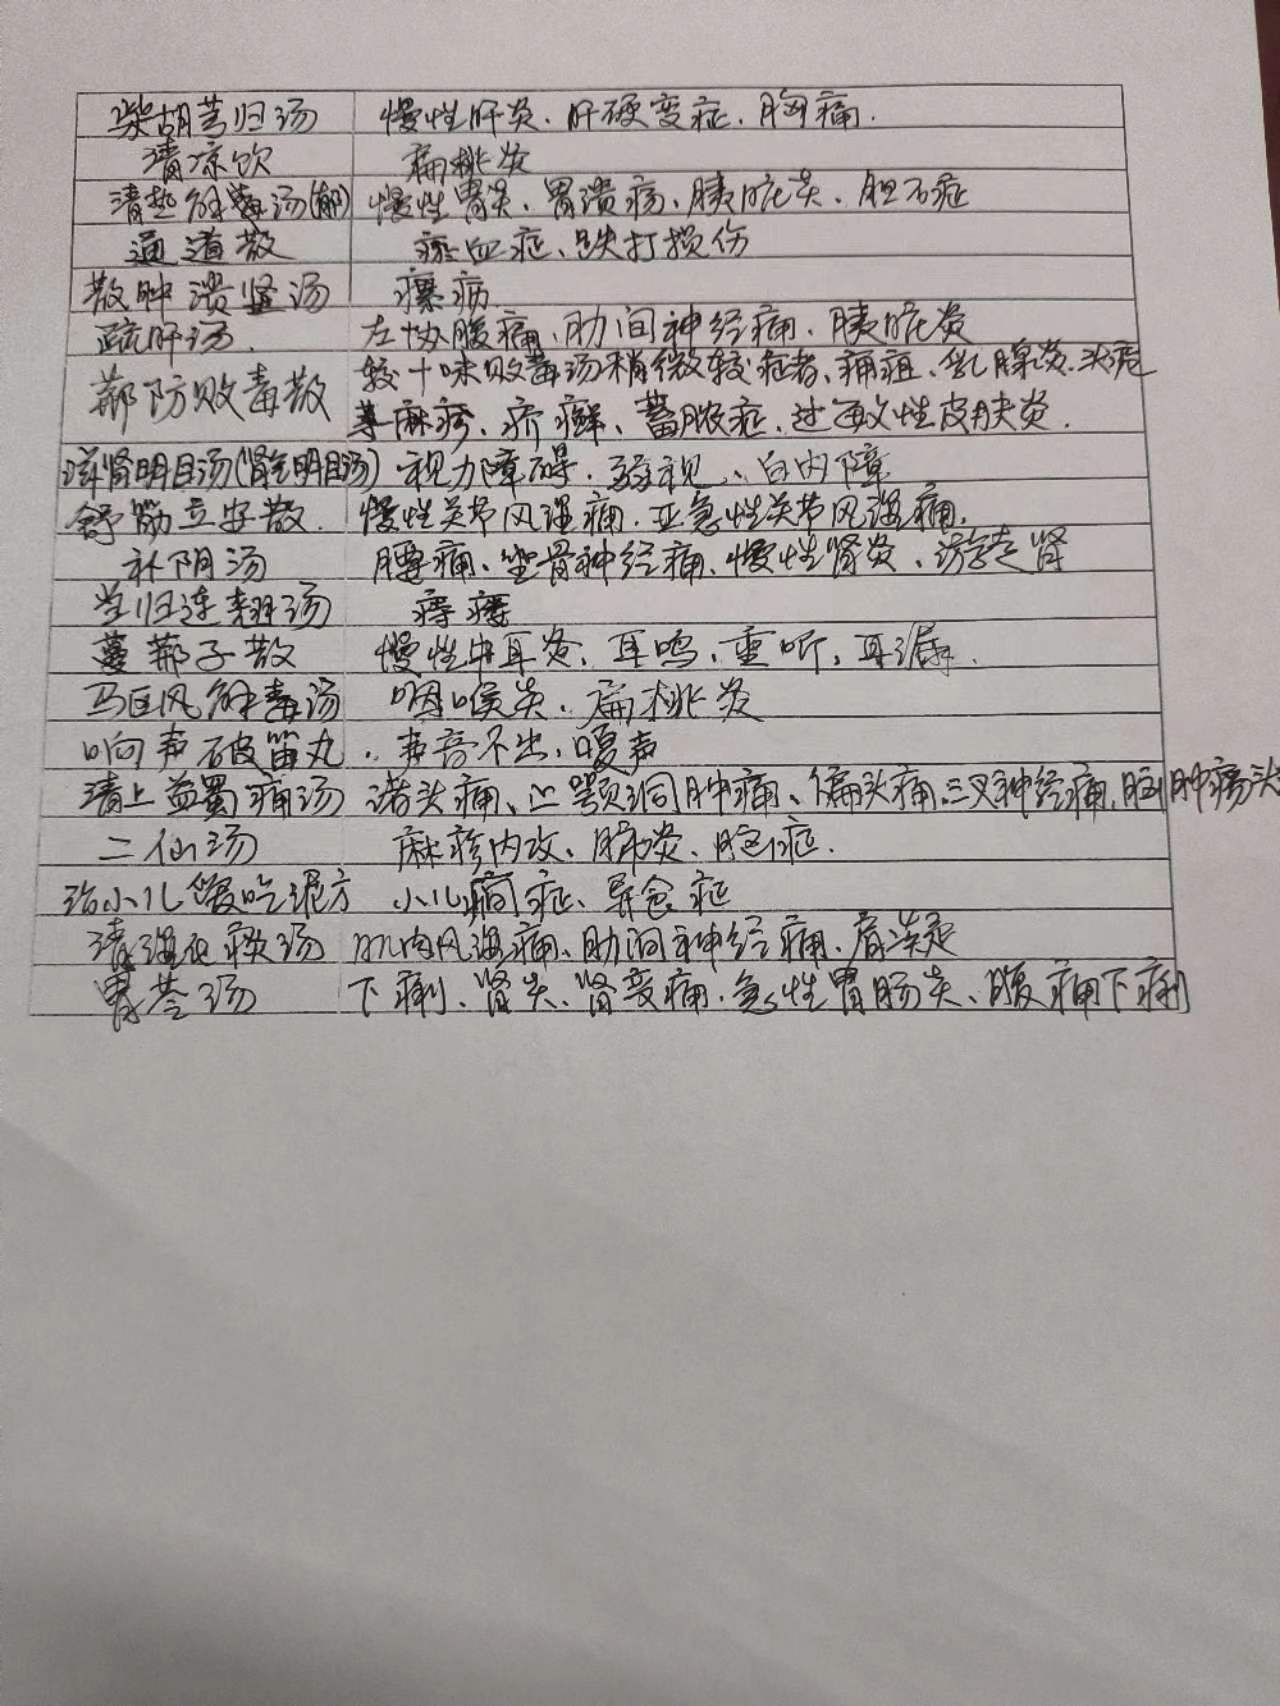 柴胡芎归汤 慢性肝炎、肝硬变症、胸痛.
清凉饮 扁桃炎
清热解毒汤(郁) 慢性胃炎、胃溃疡、胰脏炎、胆石症
通道散 瘀血症、跌打损伤
散肿溃坚汤 瘰疬
疏肝汤. 左胁腹痛、肋间神经痛、胰脏炎
荆防败毒散 较十味败毒汤稍微较症者、痈疽、乳腺炎、头疮
荨麻疹、疥癣、蓄脓症、过敏性皮肤炎.
滋肾明目汤(肾气明目汤) 视力障碍、弱视、白内障
舒筋立安散. 慢性关节风湿痛、亚急性关节风湿痛.
补阴汤 腰痛、坐骨神经痛、慢性肾炎、游走肾
当归连翘汤 痔瘘
蔓荆子散 慢性中耳炎、耳鸣、重听、耳漏.
马区风解毒汤 咽喉炎、扁桃炎
响声破笛丸. 声音不出、嗄声
清上蠲痛汤 诸头痛、上颚洞肿痛、偏头痛、三叉神经痛、脑肿疡头
二仙汤 麻疹内攻、肺炎、脑症.
治小儿爱吃泥方 小儿痫症、异食症
清湿化痰汤 肌肉风湿痛、肋间神经痛、肩凝
胃苓汤 下痢、肾炎、肾变痛、急性胃肠炎、腹痛下痢